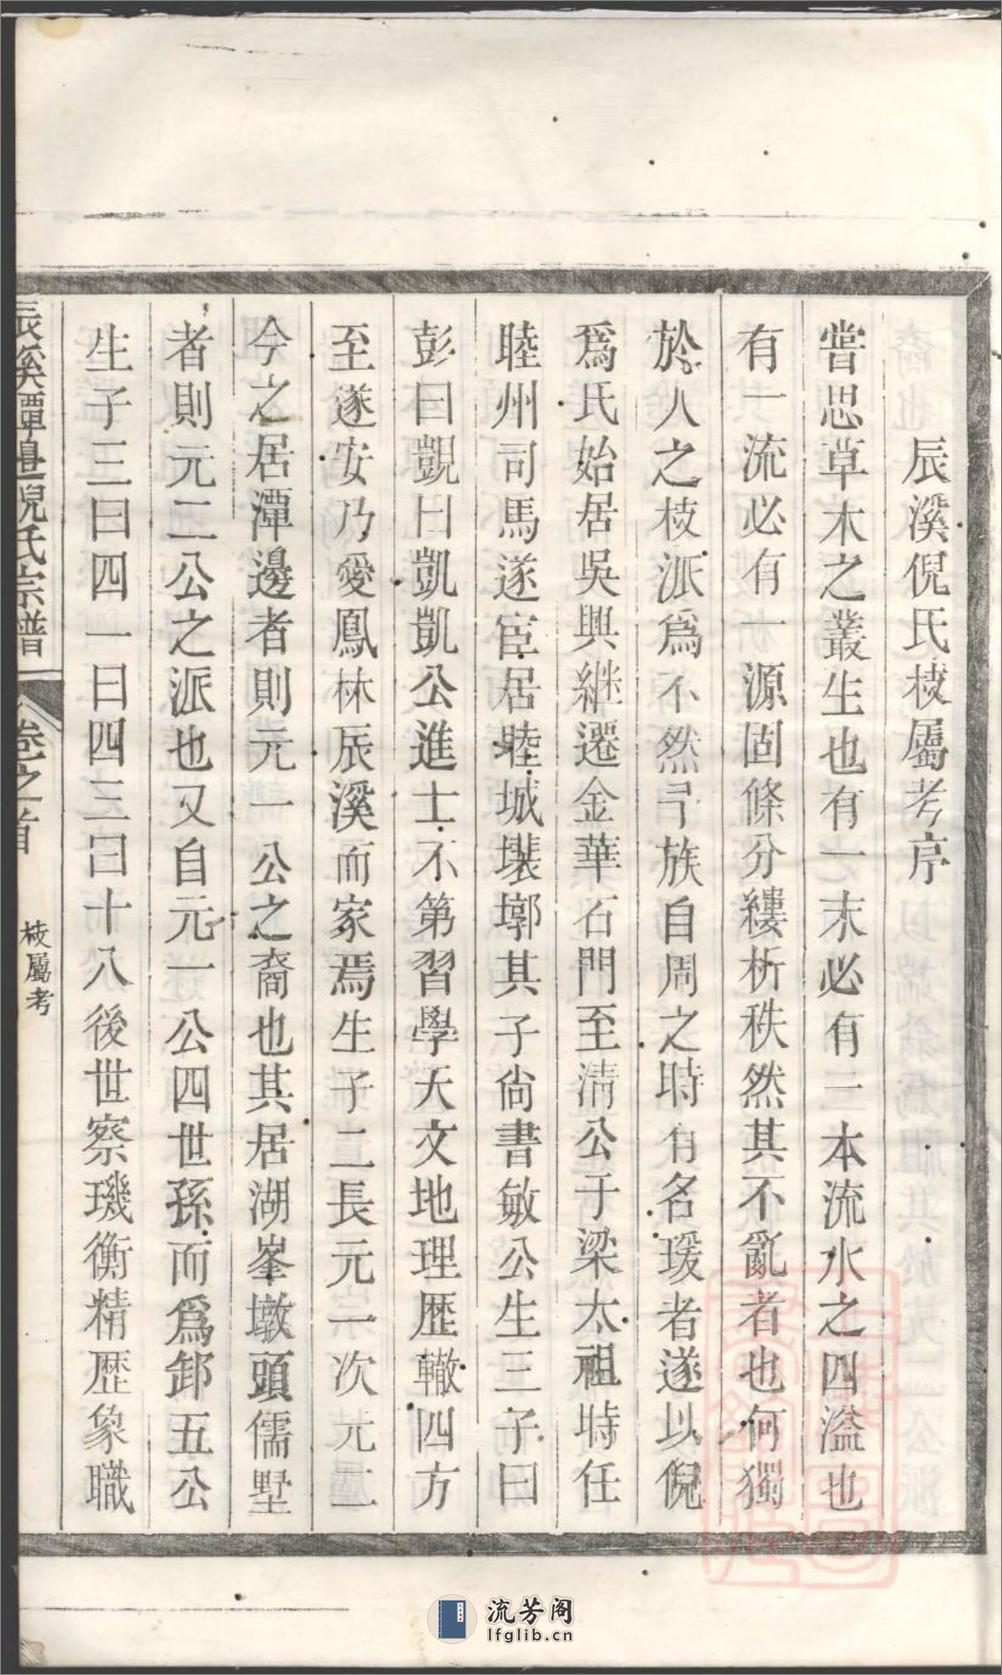 辰溪倪氏枝屬考序
嘗思草木之叢生也有一末必有一本流水之四溢也
有一流必有一源固條分縷析秩然其不亂者也何獨
於人之枝派爲不然弓族自周之時有名瑗者遂以倪
爲氏始居吳興継遷金華石門至淸公于梁太祖時任
睦州司馬遂宦居睦城裴墎其子尙書敏公生三子曰
彭曰觀曰凱凱公進士不第習學天文地理歷轍四方
至遂安乃愛鳳林辰溪而家焉生子二長元一次元二
今之居潭邊者則元一公之裔也其居湖峯墩頭儒墅
者則元二公之派也又自元一公四世孫而爲卸五公
生子三曰四一曰四三曰十八後世察璣衡精歷象職
辰溪潭邊倪氏宗譜 卷之首 枝屬考
流芳阁
lfglib.cn